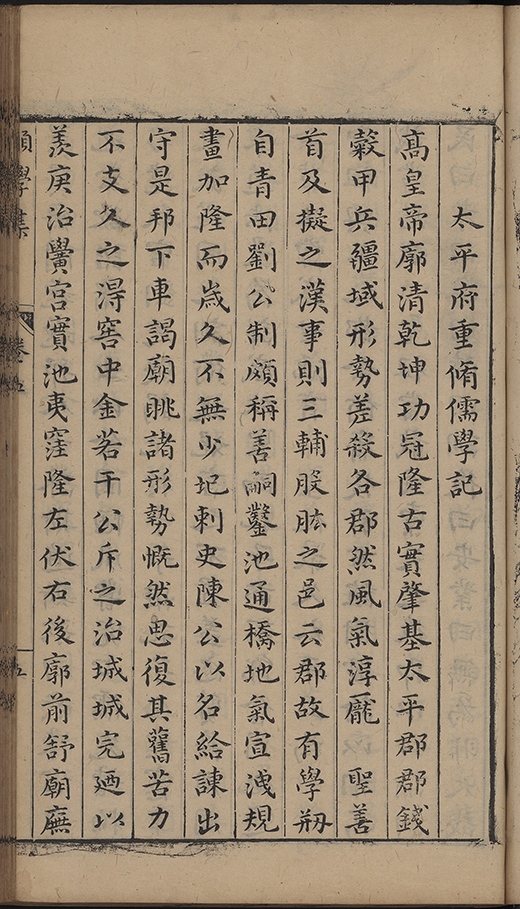 太平府重脩儒學記
高皇帝廓清乾坤功冠隆古實肇基太平郡郡錢
糓甲兵疆域形勢差殺各郡然風氣淳龐 聖善
首及擬之漢事則三輔股肱之邑云郡故有學刱
自青田劉公制頗稱善嗣鑿池通橋地氣宣洩規
畫加隆而歲久不無少圮刺史陳公以名給諫出
守是邦下車謁廟眺諸形勢慨然思復其舊苦力
不支久之淂窖中金若干公斥之治城城完廼以
羨庚治黌宮實池夷窪隆左伏右後廓前舒廟廡
學集
卷五
五